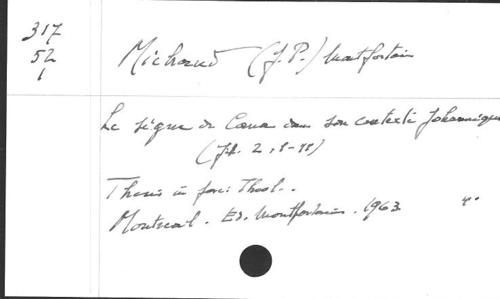 317
52
1
Michaud (J.P.) Montfortain
Le signe de Cana dans son contexte Johannique
(Jh. 2, 1-11)
Thesis in fac. Theol..
Montreal. Ed. Montfortaines. 1963. 4°